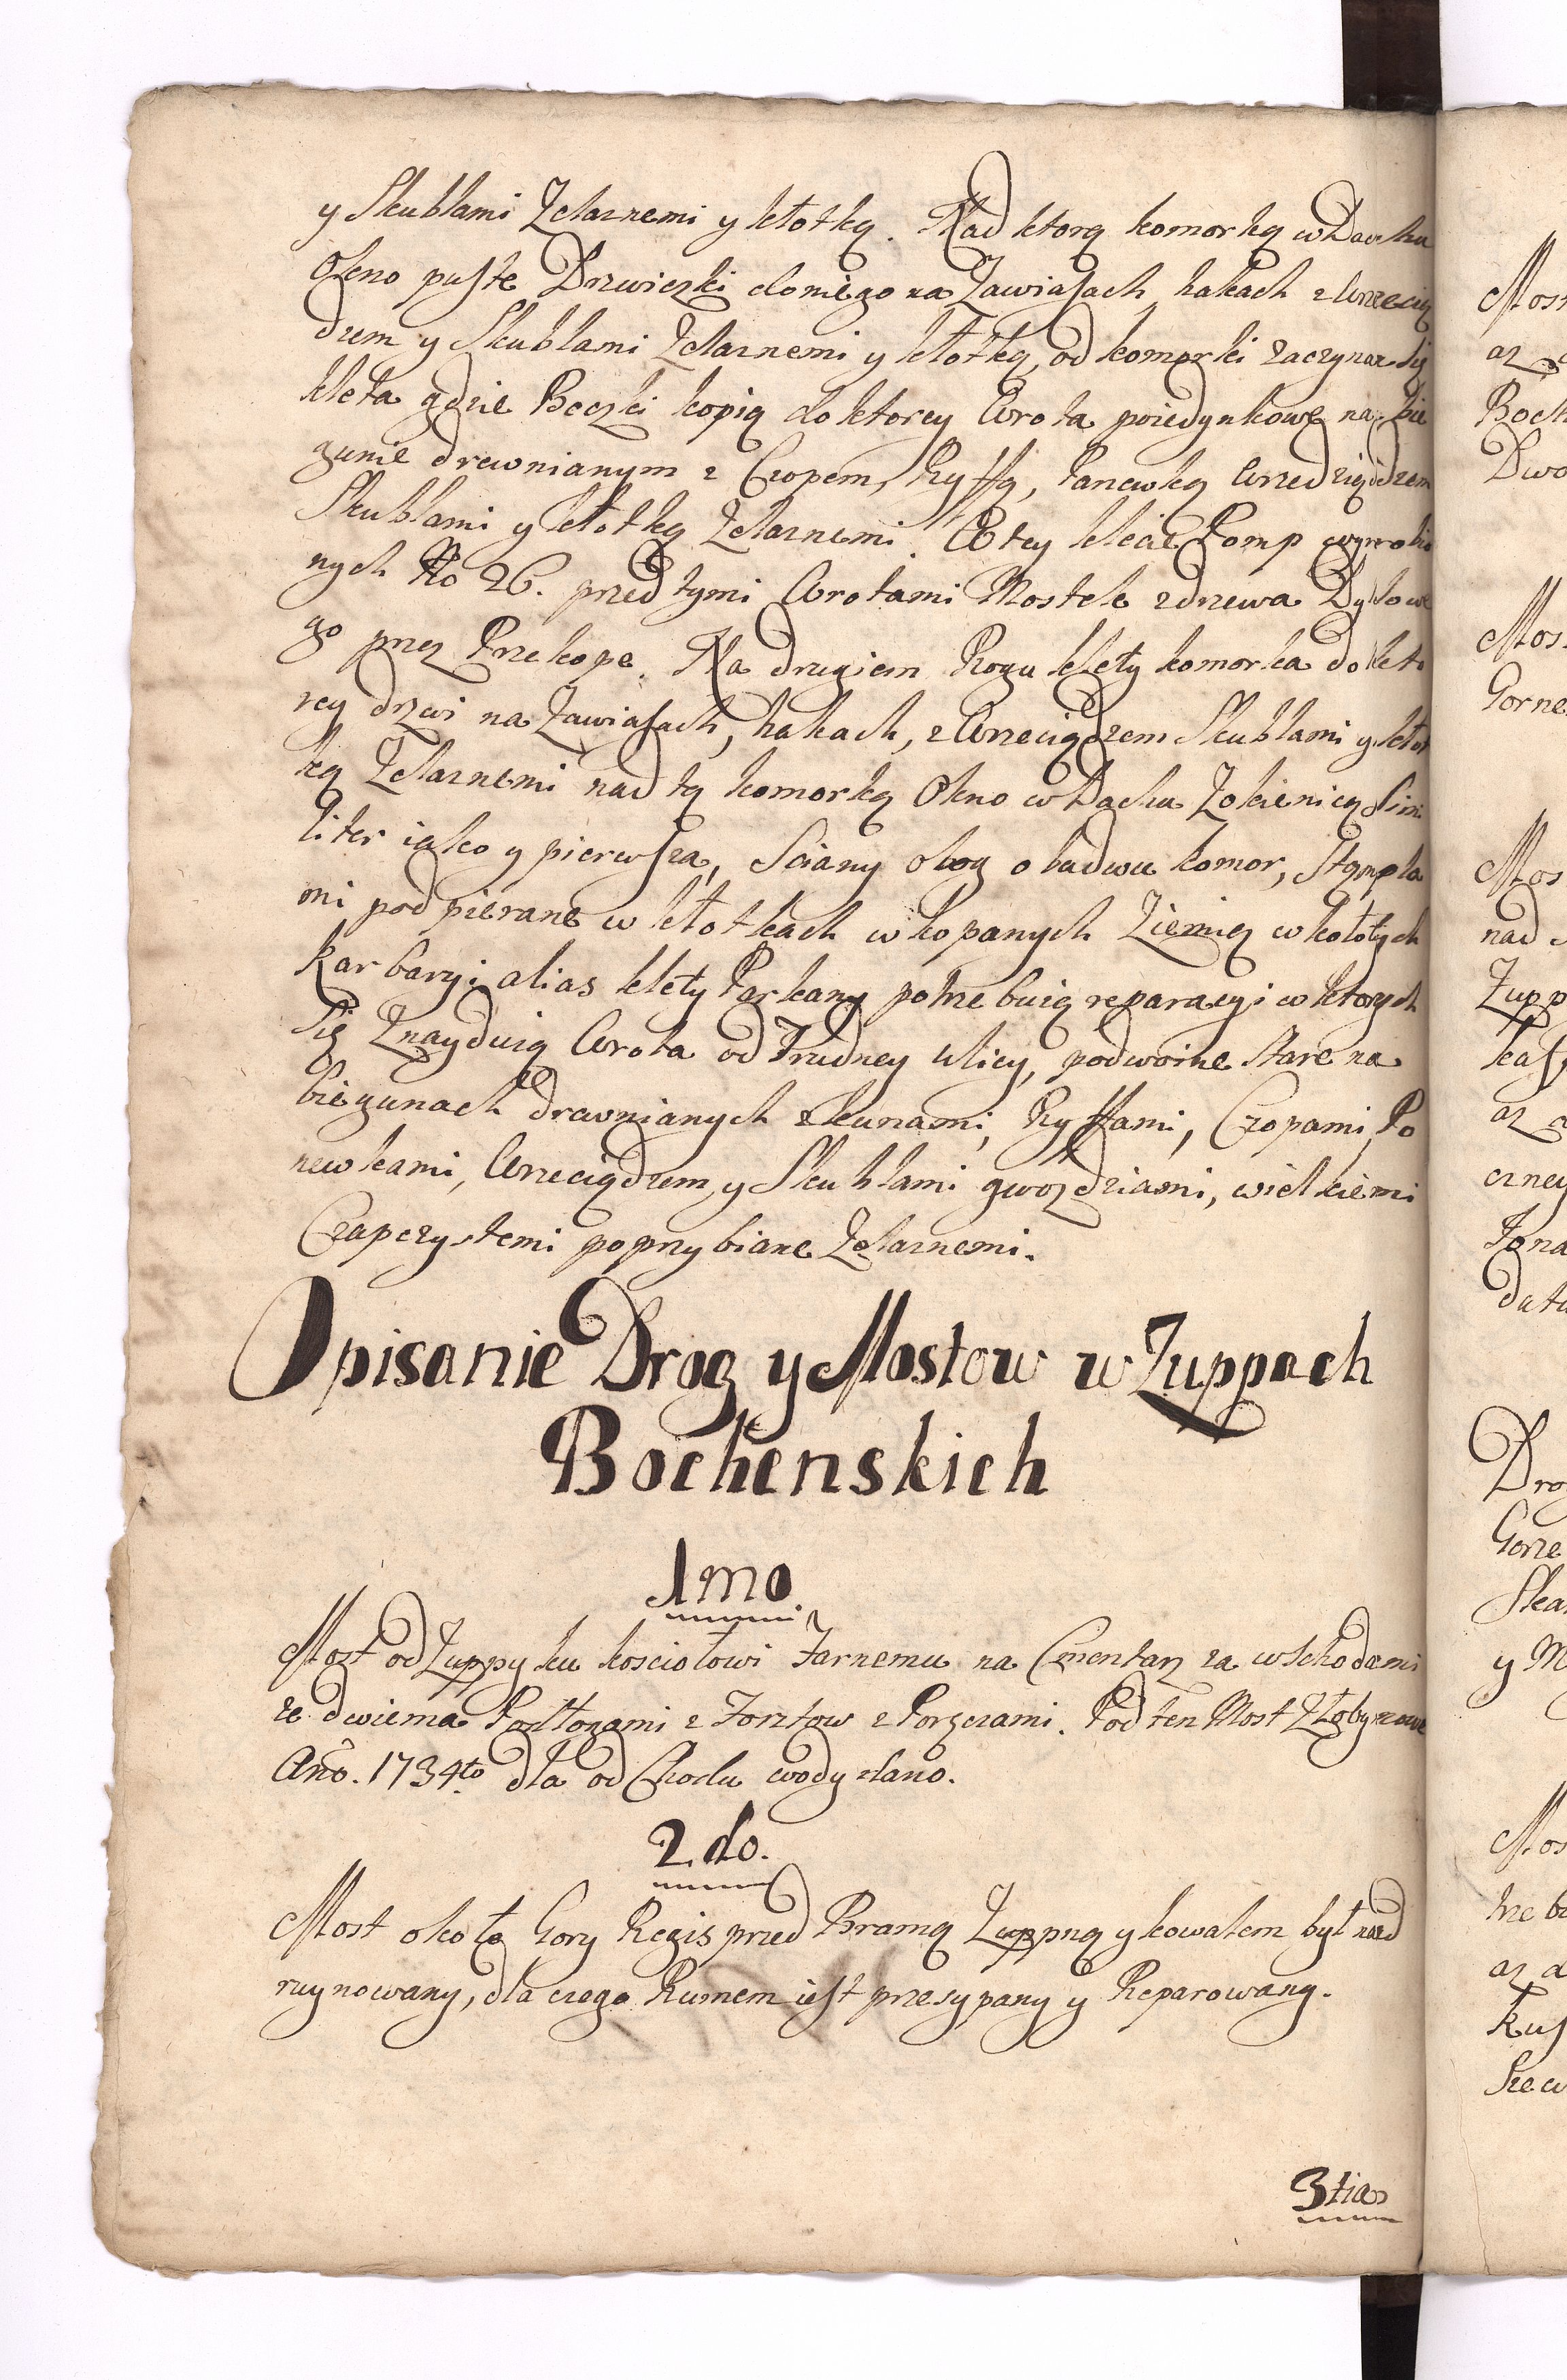 y Skublami Zelaznemi y kłotką. Nad ktorą komorką w Dachu
Okno puste Drzwiczki do niego na Zawiasach, hakach z Wrzecią
dzem y Skublami Zelaznemi y kłotką, od komorki zaczyna się
kleta gdzie Beczki kopią do ktorey Wrota poiedynkowe na bie
gunie drewnianym z Czopem, Ryffą, Panewką Wrzeciądzem
Skublami y kłotką Zelaznemi. W tey klecie Pomp wyrobio
nych No 26. przed tymi Wrotami Mostek z drzewa Dylowe
go przez Przekopę. Na drugiem Rogu klety komorka do kto
rey drzwi na Zawiasach, hakach, z Wrzeciądzem Skublami y kłot
ką Zelaznemi nad tą komorką Okno w Dachu Zokienicą Simi
liter iako y pierwsza, Sciany obog obudwu komor, Stęmpla
mi podpierane w kłotkach wkopanych Ziemią wkołotych
Karbaryi alias klety Parkany potrzebuią reparacyi w ktorych
się Znayduią Wrota od Trudney Ulicy, podwoine stare na
biegunach drewnianych z kunami, Ryffami, Czopami, Po
newkami, Wrzeciądzem, y Skublami gwozdziami, wielkiemi
Czapczystemi poprzybiane Zelaznemi.
Opisanie Drog y Mostow w Zuppach
Bochenskich
1mo
Most od Zuppy ku kosciołowi Farnemu na Cmentarz za wschodami
ze dwiema Podłogami z Forsztow z Poręczami. Pod ten Most Złoby nowe
Año. 1734to dla od Chodu wody dano.
2do.
Most około Gory Regis przed Bramą Zuppną y kowalem był nad
ruynowany, dla czego Rumem iest przesypany y Reparowany.
3tio